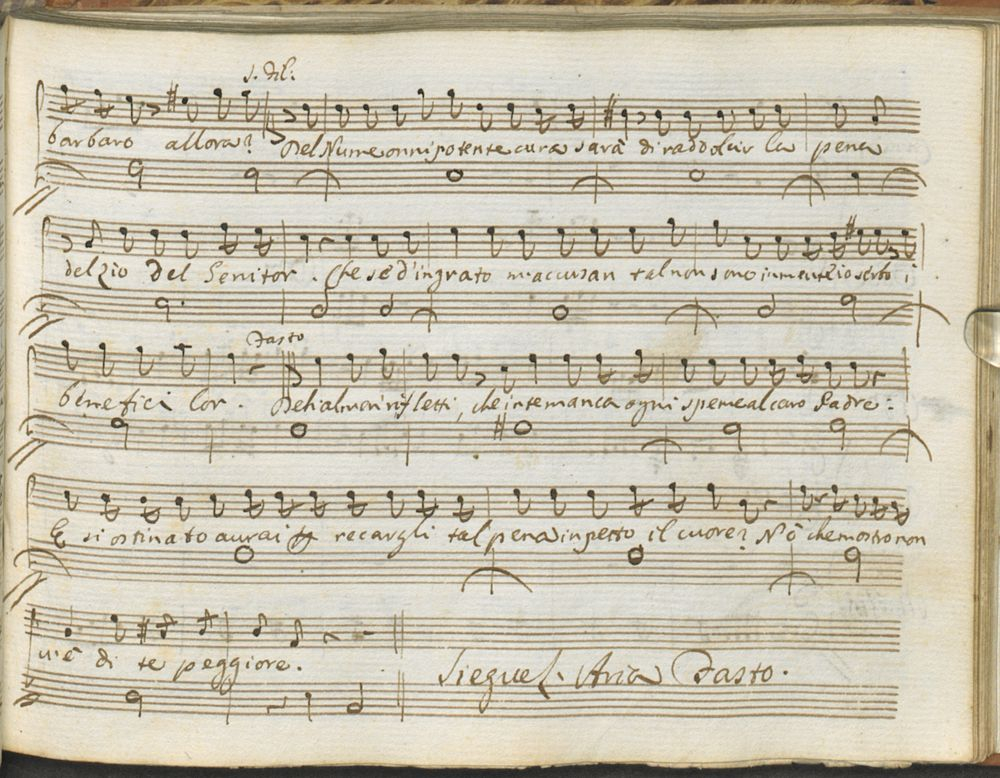 S. Fil.
barbaro allora? Del Nume onnipotente cura sarà di raddolcir la pena
del zio Del Genitor. Che se d'ingrato m'accusan tal non sono in mente io serbo i
Fasto
benefici lor. Deh almen rifletti, che in te manca ogni speme al caro Padre:
E sì ostinato aurai recargli tal pena in petto il cuore? Nò che mostro non
u'è di te peggiore.
Siegue l'Aria Fasto.